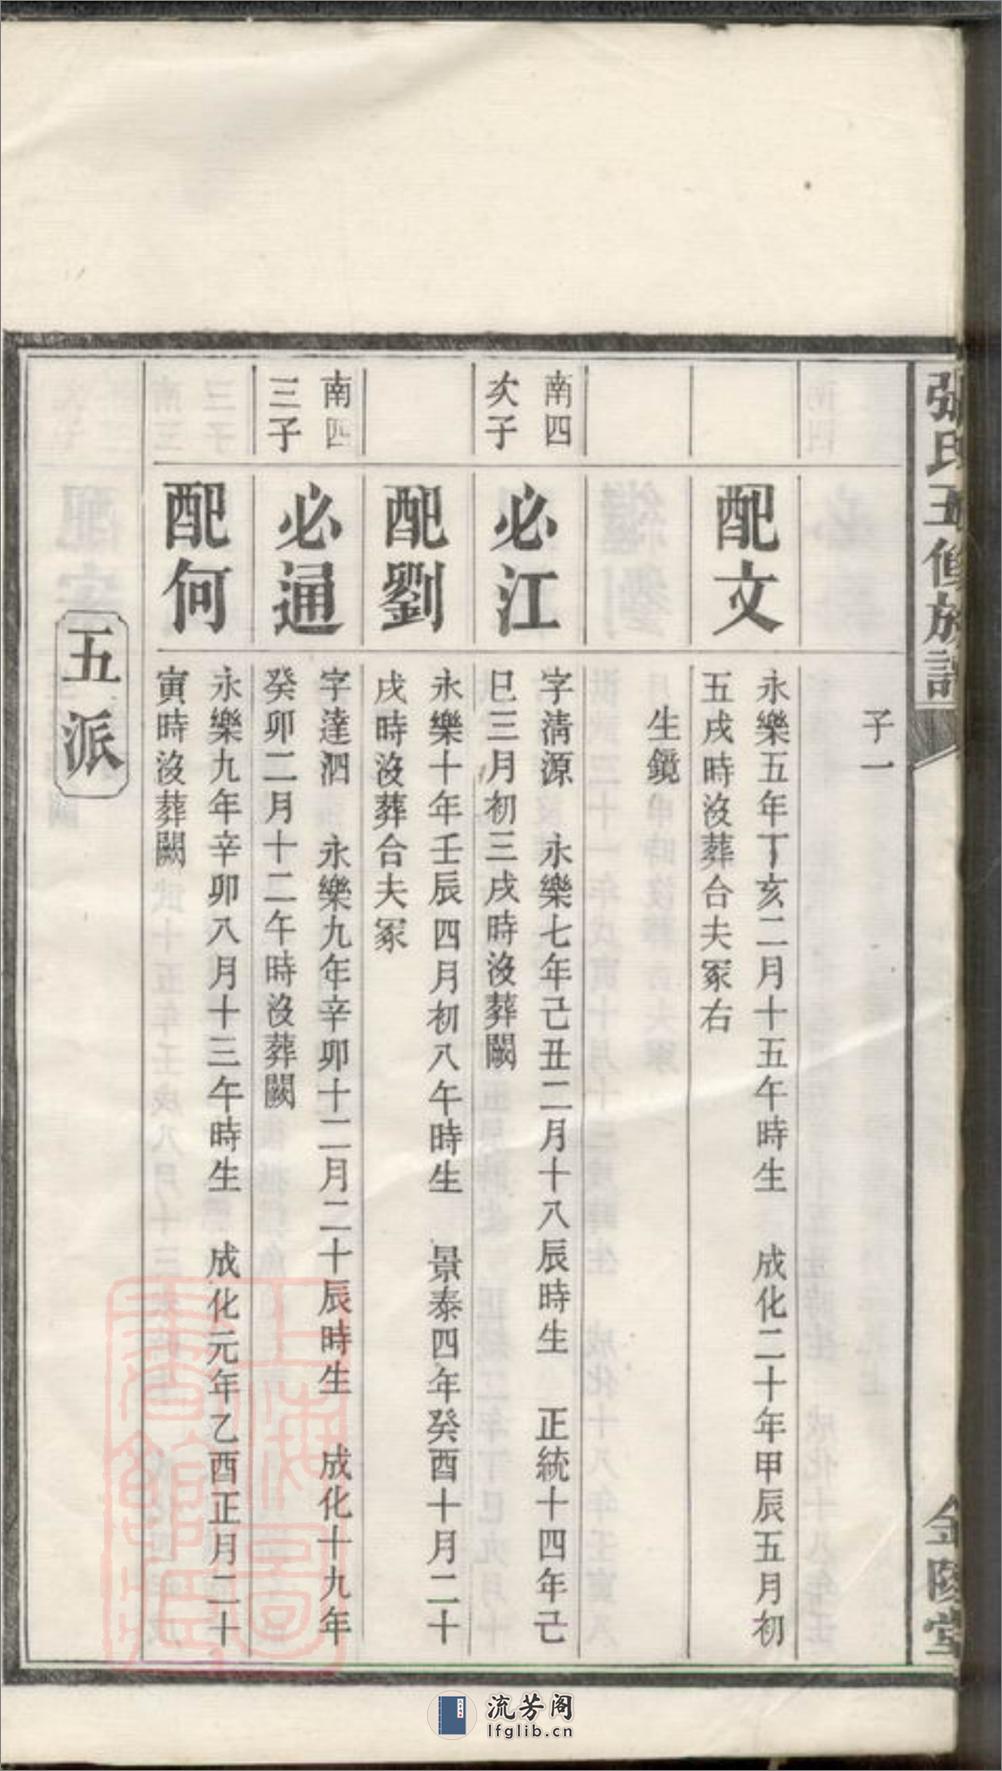 張氏五修族譜
金陵堂
子一
配文
永樂五年丁亥二月十五午時生 成化二十年甲辰五月初
五戌時沒葬合夫冢右
生鏡
南四
次子
必江
字清源 永樂七年己丑二月十八辰時生 正統十四年己
巳三月初三戌時沒葬闕
配劉
永樂十年壬辰四月初八午時生 景泰四年癸酉十月二十
戌時沒葬合夫冢
南四
三子
必通
字達泗 永樂九年辛卯十二月二十辰時生 成化十九年
癸卯二月十二午時沒葬闕
配何
永樂九年辛卯八月十三午時生 成化元年乙酉正月二十
寅時沒葬闕
五派
上海圖書館藏
流芳阁
lfglib.cn